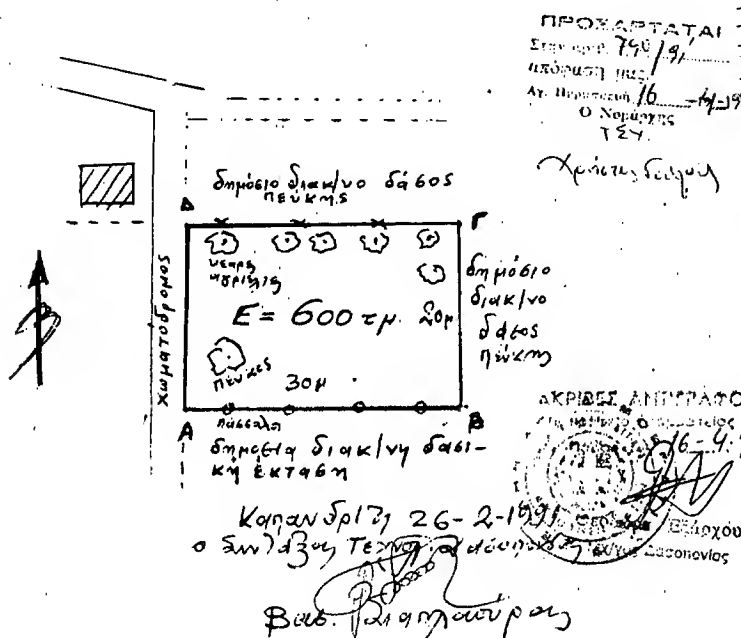 ΠΡΟΣΑΡΤΑΤΑΙ
Στην αριθ. 790/91
απόφασή μας
Αγ. Παρασκευή 16
Ο Νομάρχης
Τ Σ Υ.
δημόσιο διακ/νο δάσος
πεύκης
Δ
Γ
νεαρές
αγριελιές
δημόσιο
διακ/νο
δάσος
πεύκης
χωματοδρομος
Ε = 600 τμ. 20μ
πεύκες
30μ
Α
πάσσαλοι
Β
δημόσια διακ/νη δασι-
κή έκταση
ΑΚΡΙΒΕΣ ΑΝΤΙΓΡΑΦΟ
16-4-
Καπανδρίτη 26-2-1991
ο Συντάξας
Εξάρχου
Δασοπονίας
Βασ.